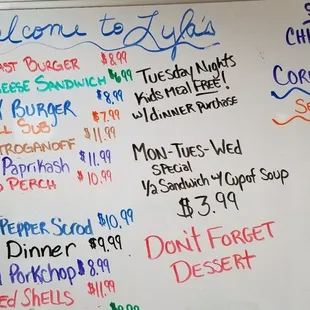 elcome to Lyla's
AST BURGER $8.99
HEESE SANDWICH $6.99
Y BURGER $8.99
LL SUB $7.99
TROGANOFF $11.99
Paprikash $11.99
D PERCH $10.99
PEPPER Scrod $10.99
Dinner $9.99
Porkchop $8.99
ED SHELLS $11.99
Tuesday Nights
Kids Meal FREE!
w/ Dinner Purchase
Mon-Tues-Wed
Special
1/2 Sandwich w/ Cup of Soup
$3.99
DON'T FORGET
DESSERT
S
CHI
COR
Se